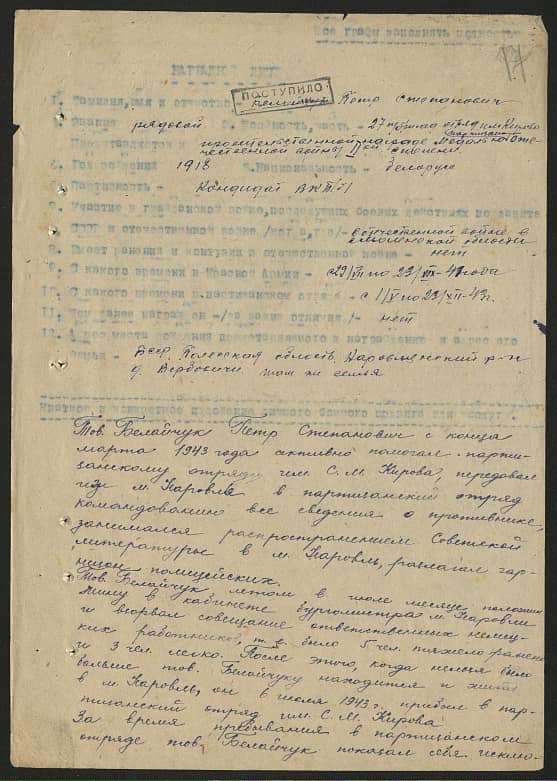 Все графы заполнять полностью
17
НАГРАДНОЙ ЛИСТ
ПОСТУПИЛО
1. Фамилия, имя и отчество - Белайчук Петр Степанович
2. Звание рядовой 3. Должность, часть - 27 отряд им. Кирова
партизан
Представляется к правительственной награде Медаль "Оте-
чественной войны" II-ой степени.
4. Год рождения 1918 5. Национальность - беларус
6. Партийность - Кандидат ВКП/б/
7. Участие в гражданской войне, последующих боевых действиях по защите
СССР и отечественной войне /где и когда/ - в отечественной войне в
смоленской области
8. Имеет ранения и контузии в отечественной войне - нет
9. С какого времени в Красной Армии - с 29/ по 23/ - 41 года
10. С какого времени в партизанском отряде - с 1/V по 23/XII-43г.
11. Чем ранее награжден /за какие отличия/ - нет
12. Адрес места рождения представляемого к награждению и адрес его
семьи - БССР, Полесская область, Наровлянский р-н
д. Вербовичи там же семья
Краткое и конкретное изложение личного боевого подвига или заслуг.
Тов. Белайчук Петр Степанович с конца
марта 1943 года активно помогал парти-
занскому отряду им. С. М. Кирова, передавал
из м. Наровля в партизанский отряд
командованию все сведения о противнике,
занимался распространением Советской
литературы в м. Наровль, разлагал гар-
низон полицейских.
Тов. Белайчук летом в июле месяце положил
мину в кабинете бургомистра м. Наровли
и взорвал совещание ответственных немец-
ких работников, т.е. было 5 чел. тяжело ранено
и 3 чел. легко. После этого, когда нельзя было
больше тов. Белайчуку находится и жить
в м. Наровль, он в июля 1943 г. прибыл в пар-
тизанский отряд им. С. М. Кирова.
За время пребывания в партизанском
отряде тов. Белайчук показал себя исклю-